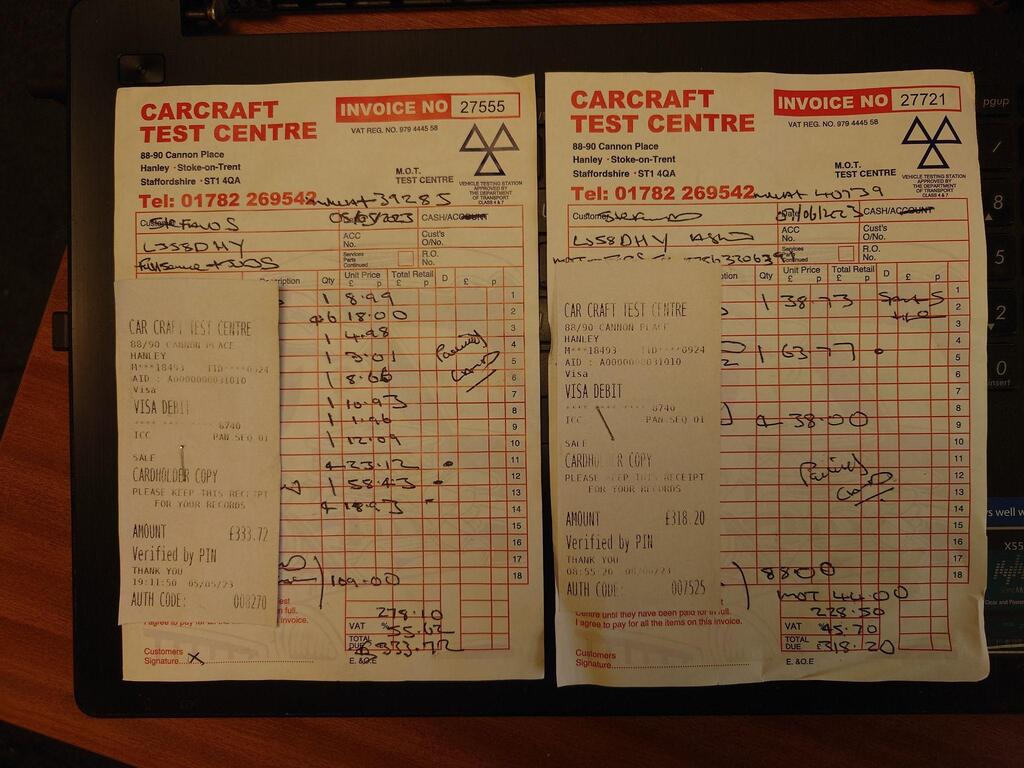 CARCRAFT
TEST CENTRE
INVOICE NO 27555
VAT REG. NO. 979 4445 58
88-90 Cannon Place
Hanley · Stoke-on-Trent
Staffordshire · ST1 4QA
M.O.T.
TEST CENTRE
VEHICLE TESTING STATION
APPROVED BY THE
DEPARTMENT OF
TRANSPORT
CLASS 4 & 7
Tel: 01782 269542
39285
05/05/2023
CASH/ACCOUNT
LS58DHY
ACC
No.
Cust's
O/No.
Services
Parts
Continued
R.O.
No.
Qty
Unit Price
£ p
Total Retail
£ p
D
£ p
1 8.99 1
6 18.00 2
1 4.98 3
1 3.01 4
1 8.66 5
6
1 10.93 7
1 1.96 8
1 12.09 9
10
23.12 11
1 58.43 12
18.93 13
14
15
16
17
18
109.00
278.10
VAT % 55.62
TOTAL
DUE £333.72
I agree to pay for all the items on this invoice.
Customers
Signature X
E. &O.E
CAR CRAFT TEST CENTRE
88/90 CANNON PLACE
HANLEY
M***18493 TID****0924
AID : A0000000031010
Visa
VISA DEBIT
**** **** **** 6740
ICC PAN.SEQ 01
SALE
CARDHOLDER COPY
PLEASE KEEP THIS RECEIPT
FOR YOUR RECORDS
AMOUNT £333.72
Verified by PIN
THANK YOU
19:11:50 05/05/23
AUTH CODE: 008270
CARCRAFT
TEST CENTRE
INVOICE NO 27721
VAT REG. NO. 979 4445 58
88-90 Cannon Place
Hanley · Stoke-on-Trent
Staffordshire · ST1 4QA
M.O.T.
TEST CENTRE
VEHICLE TESTING STATION
APPROVED BY
THE DEPARTMENT
OF TRANSPORT
CLASS 4 & 7
Tel: 01782 269542
40739
Customer
CASH/ACCOUNT
LS58DHY
ACC
No.
Cust's
O/No.
Services
Parts
Continued
R.O.
No.
Qty
Unit Price
£ p
Total Retail
£ p
D
£ p
1 38.73 1
2
3
1 63.77 4
5
6
7
8
38.00 9
10
11
12
13
14
15
16
17
88.00 18
MOT 44.00
228.50
VAT % 45.70
TOTAL
DUE £318.20
Centre until they have been paid for in full.
I agree to pay for all the items on this invoice.
Customers
Signature
E. &O.E
CAR CRAFT TEST CENTRE
88/90 CANNON PLACE
HANLEY
M***18493 TID****0924
AID : A0000000031010
Visa
VISA DEBIT
**** **** **** 6740
ICC PAN.SEQ 01
SALE
CARDHOLDER COPY
PLEASE KEEP THIS RECEIPT
FOR YOUR RECORDS
AMOUNT £318.20
Verified by PIN
THANK YOU
AUTH CODE: 007525
pgup
8
5
2
0
insert